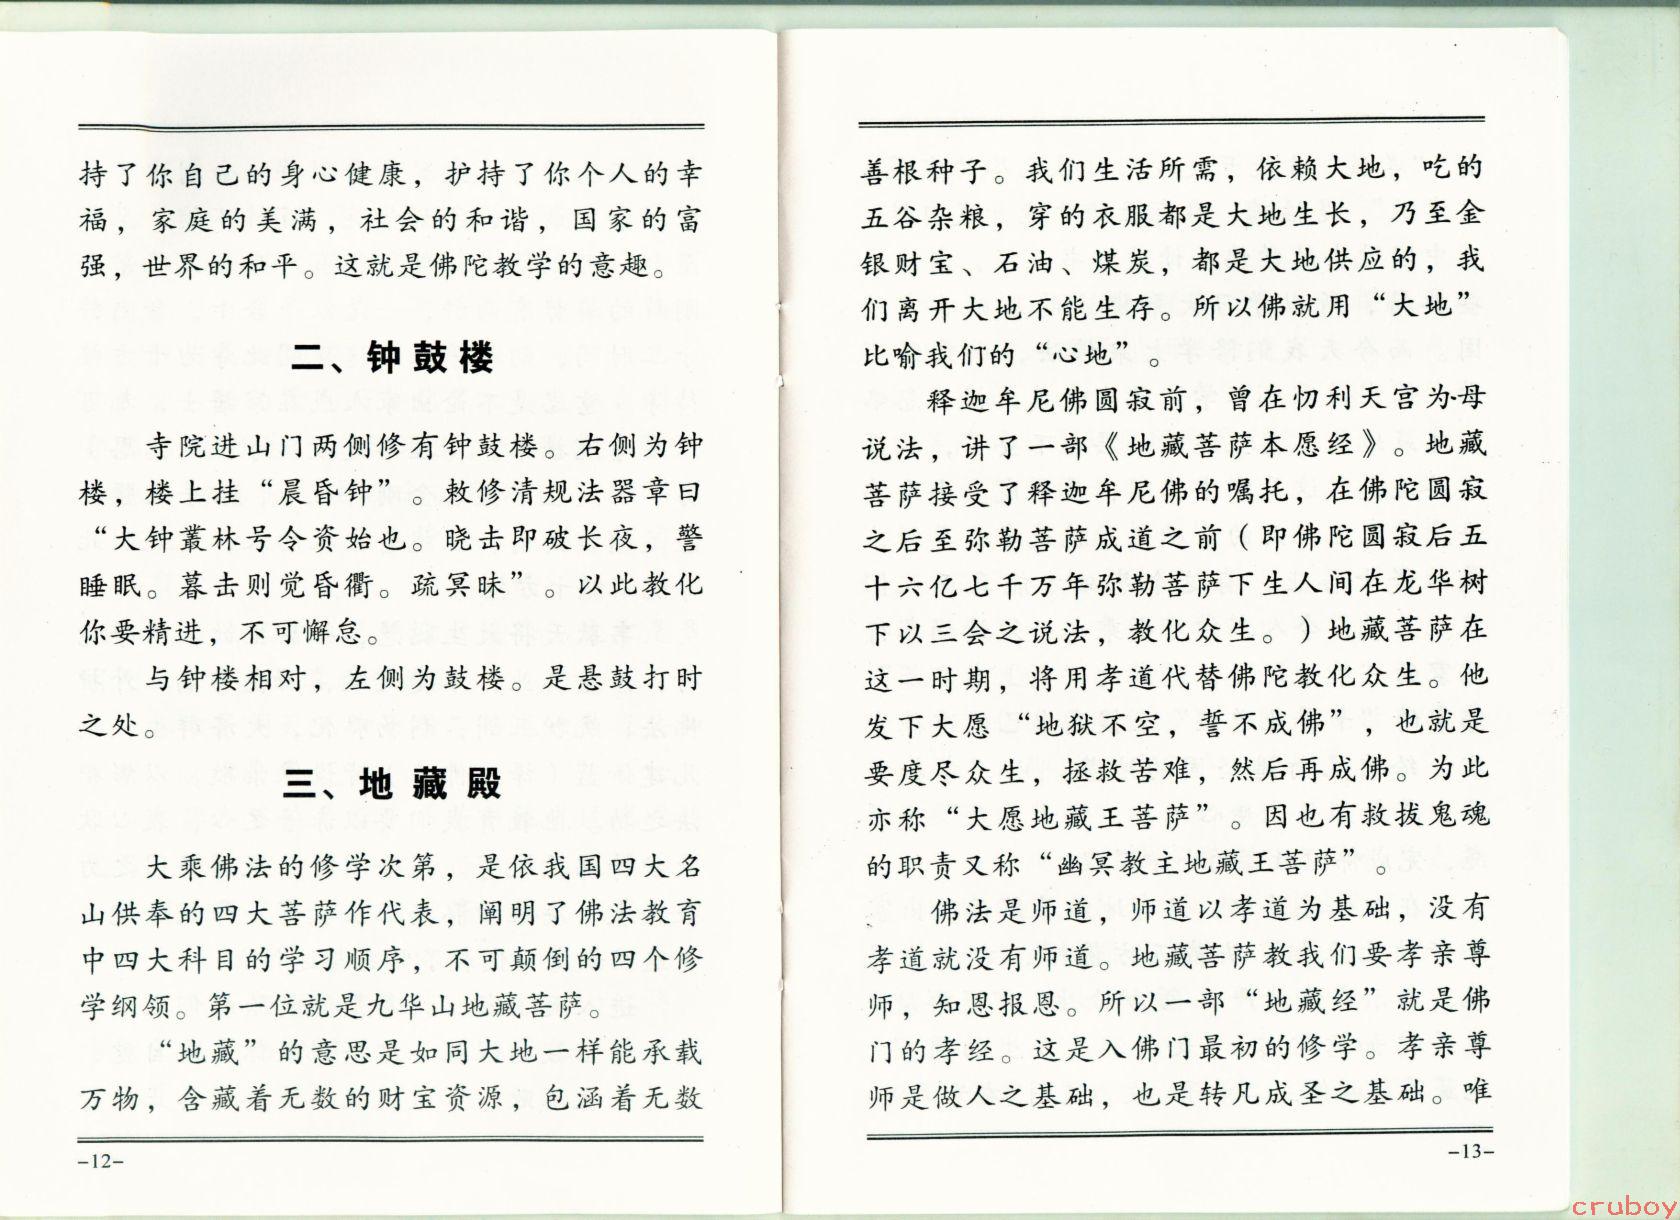 持了你自己的身心健康，护持了你个人的幸
福，家庭的美满，社会的和谐，国家的富
强，世界的和平。这就是佛陀教学的意趣。
二、钟鼓楼
寺院进山门两侧修有钟鼓楼。右侧为钟
楼，楼上挂“晨昏钟”。敕修清规法器章曰
“大钟叢林号令资始也。晓击即破长夜，警
睡眠。暮击则觉昏衢。疏冥昧”。以此教化
你要精进，不可懈怠。
与钟楼相对，左侧为鼓楼。是悬鼓打时
之处。
三、地藏殿
大乘佛法的修学次第，是依我国四大名
山供奉的四大菩萨作代表，阐明了佛法教育
中四大科目的学习顺序，不可颠倒的四个修
学纲领。第一位就是九华山地藏菩萨。
“地藏”的意思是如同大地一样能承载
万物，含藏着无数的财宝资源，包涵着无数
-12-
善根种子。我们生活所需，依赖大地，吃的
五谷杂粮，穿的衣服都是大地生长，乃至金
银财宝、石油、煤炭，都是大地供应的，我
们离开大地不能生存。所以佛就用“大地”
比喻我们的“心地”。
释迦牟尼佛圆寂前，曾在忉利天宫为母
说法，讲了一部《地藏菩萨本愿经》。地藏
菩萨接受了释迦牟尼佛的嘱托，在佛陀圆寂
之后至弥勒菩萨成道之前（即佛陀圆寂后五
十六亿七千万年弥勒菩萨下生人间在龙华树
下以三会之说法，教化众生。）地藏菩萨在
这一时期，将用孝道代替佛陀教化众生。他
发下大愿“地狱不空，誓不成佛”，也就是
要度尽众生，拯救苦难，然后再成佛。为此
亦称“大愿地藏王菩萨”。因也有救拔鬼魂
的职责又称“幽冥教主地藏王菩萨”。
佛法是师道，师道以孝道为基础，没有
孝道就没有师道。地藏菩萨教我们要孝亲尊
师，知恩报恩。所以一部“地藏经”就是佛
门的孝经。这是入佛门最初的修学。孝亲尊
师是做人之基础，也是转凡成圣之基础。唯
-13-
cruboy